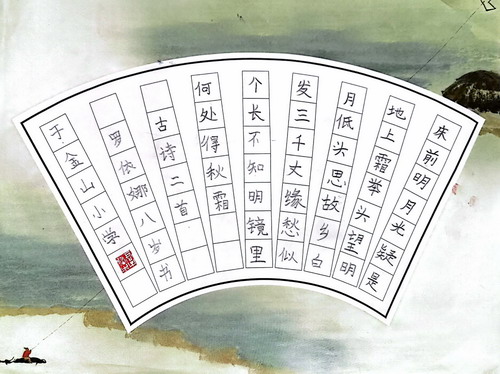 床前明月光疑是
地上霜举头望明
月低头思故乡白
发三千丈缘愁似
个长不知明镜里
何处得秋霜
古诗二首
罗依娜八岁书
于金山小学